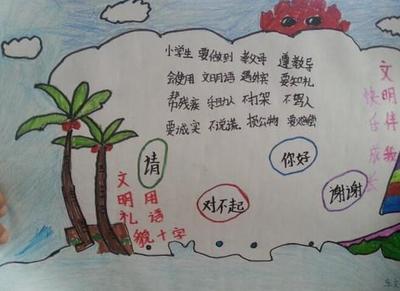 小学生 要做到 孝父母 遵教导
会使用 文明语 遇外宾 要知礼
帮残疾 不打架 不骂人
要诚实 不说谎 损公物 要赔偿
请
你好
对不起
谢谢
文明礼貌
用语十字
文明伴我
快乐成长